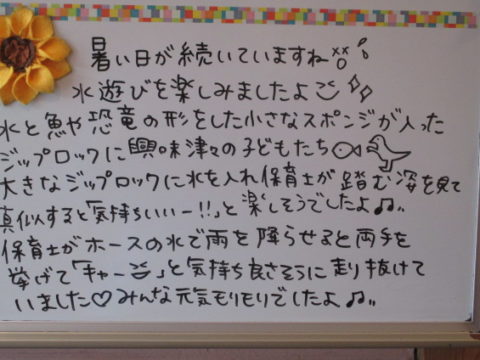 暑い日が続いていますね
水遊びを楽しみましたよ
水と魚や恐竜の形をした小さなスポンジが入った
ジップロックに興味津々の子どもたち
大きなジップロックに水を入れ保育士が踏む姿を見て
真似すると「気持ちいいー!!」と楽しそうでしたよ♫
保育士がホースの水で雨を降らせると両手を
挙げて「キャー」と気持ち良さそうに走り抜けて
いました♡みんな元気モリモリでしたよ♫